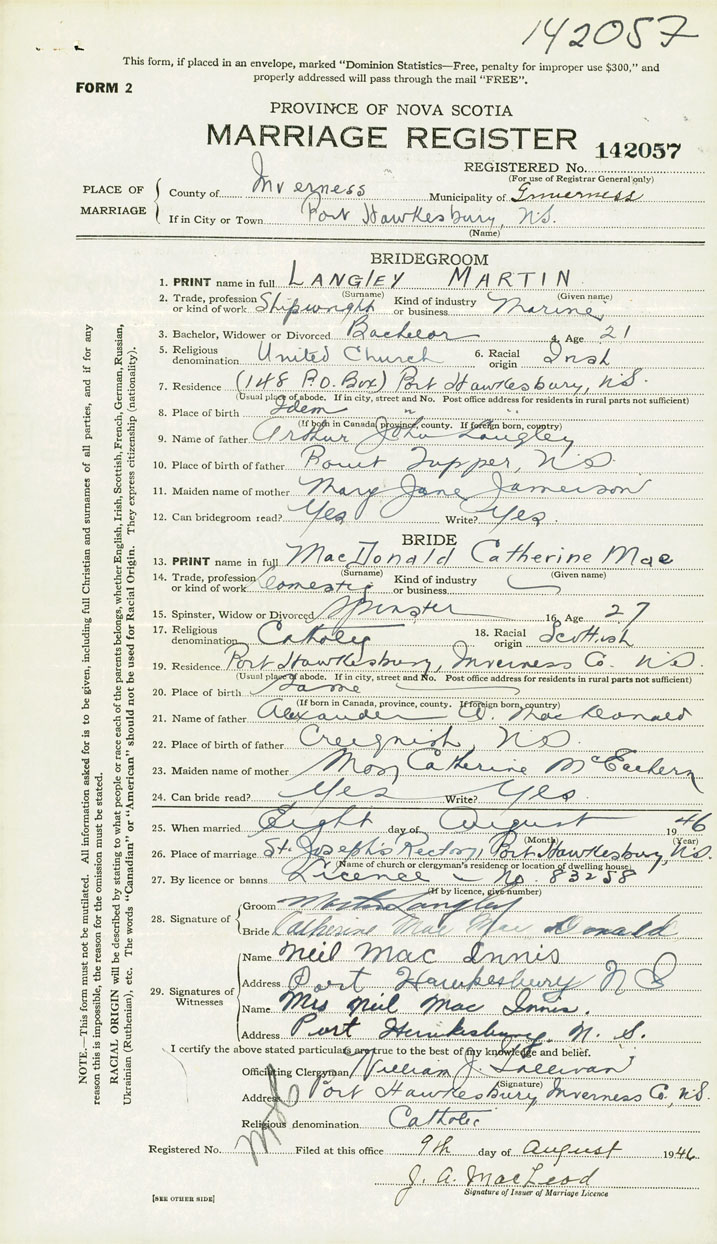 142057
This form, if placed in an envelope, marked "Dominion Statistics—Free, penalty for improper use $300," and
properly addressed will pass through the mail "FREE".
FORM 2
PROVINCE OF NOVA SCOTIA
MARRIAGE REGISTER 142057
REGISTERED No.
(For use of Registrar General only)
PLACE OF MARRIAGE
County of Inverness Municipality of Inverness
If in City or Town Port Hawkesbury, N.S.
(Name)
BRIDEGROOM
1. PRINT name in full LANGLEY MARTIN
(Surname) (Given name)
2. Trade, profession or kind of work Shipwright Kind of industry or business Marine
3. Bachelor, Widower or Divorced Bachelor 4. Age 21
5. Religious denomination United Church 6. Racial origin Irish
7. Residence (148 P.O. Box) Port Hawkesbury, N.S.
(Usual place of abode. If in city, street and No. Post office address for residents in rural parts not sufficient)
8. Place of birth Idem " "
(If born in Canada, province, county. If foreign born, country)
9. Name of father Arthur John Langley
10. Place of birth of father Point Tupper, N.S.
11. Maiden name of mother Mary Jane Jameison
12. Can bridegroom read? Yes Write? Yes.
BRIDE
13. PRINT name in full MacDonald Catherine Mae
(Surname) (Given name)
14. Trade, profession or kind of work Domestic Kind of industry or business
15. Spinster, Widow or Divorced Spinster 16. Age 27
17. Religious denomination Catholic 18. Racial origin Scottish
19. Residence Port Hawkesbury, Inverness Co. N.S.
(Usual place of abode. If in city, street and No. Post office address for residents in rural parts not sufficient)
20. Place of birth Same
(If born in Canada, province, county. If foreign born, country)
21. Name of father Alexander D. MacDonald
22. Place of birth of father Creignish, N.S.
23. Maiden name of mother Mary Catherine McEachern
24. Can bride read? Yes Write? Yes.
25. When married Eight day of August 1946
(Month) (Year)
26. Place of marriage St. Joseph's Rectory, Port Hawkesbury, N.S.
(Name of church or clergyman's residence or location of dwelling house)
27. By licence or banns Licence – No. 83258
(If by licence, give number)
28. Signature of
Groom Martin Langley
Bride Catherine Mae MacDonald
29. Signatures of Witnesses
Name Neil Mac Innis
Address Port Hawkesbury N S
Name Mrs Neil Mac Innis.
Address Port Hawkesbury, N. S.
I certify the above stated particulars are true to the best of my knowledge and belief.
Officiating Clergyman William J. Sullivan
(Signature)
Address Port Hawkesbury, Inverness Co., N.S.
Religious denomination Catholic
Registered No. Filed at this office 9th day of August 1946
J. A. MacLeod
Signature of Issuer of Marriage Licence
[SEE OTHER SIDE]
NOTE.—This form must not be mutilated. All information asked for is to be given, including full Christian and surnames of all parties, and if for any
reason this is impossible, the reason for the omission must be stated.
RACIAL ORIGIN will be described by stating to what people or race each of the parents belongs, whether English, Irish, Scottish, French, German, Russian,
Ukrainian (Ruthenian), etc. The words "Canadian" or "American" should not be used for Racial Origin. They express citizenship (nationality).